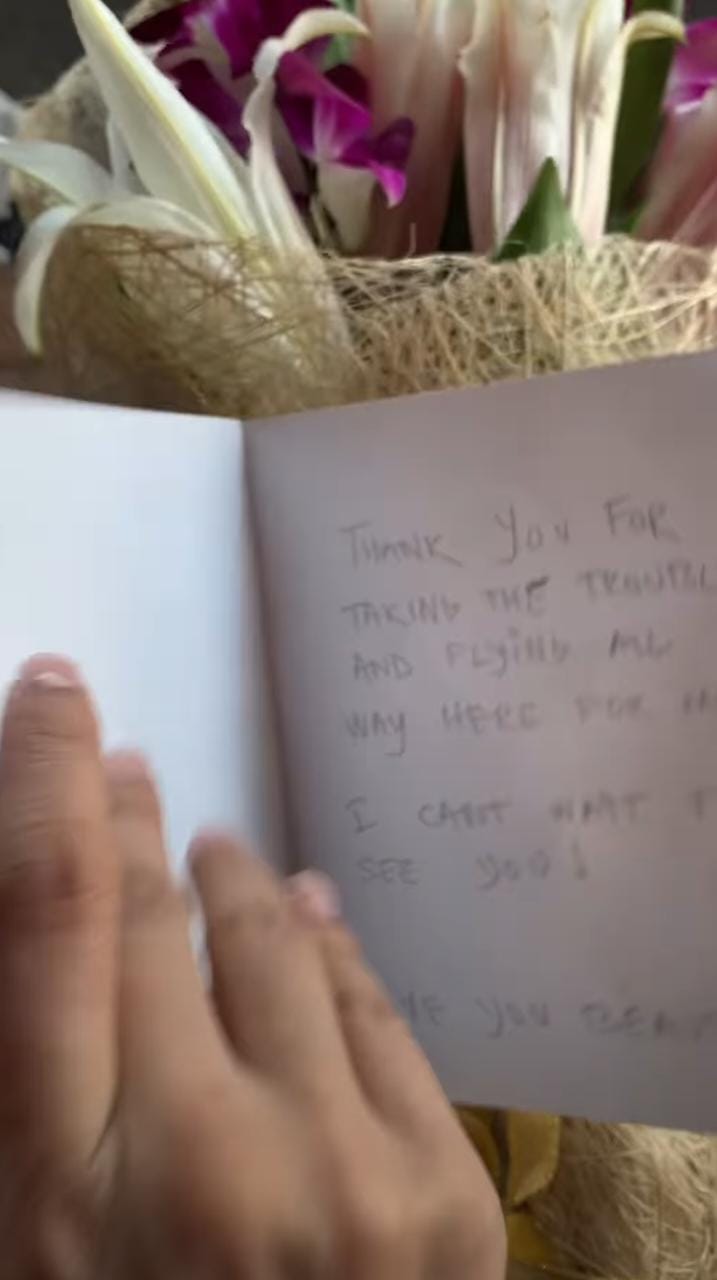 THANK YOU FOR
TAKING THE TROUBL
AND FLYING ALL
WAY HERE FOR M
I CAN'T WAIT T
SEE YOU!
VE YOU BEAU